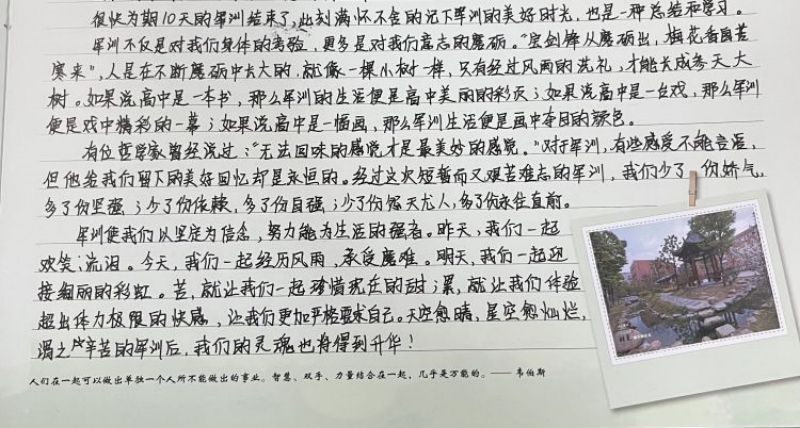 很快为期10天的军训结束了,此刻满怀不舍的记下军训的美好时光,也是一种总结和学习。
军训不仅是对我们身体的考验,更多是对我们意志的磨砺。“宝剑锋从磨砺出,梅花香自苦
寒来”,人是在不断磨砺中长大的,就像一棵小树一样,只有经过风雨的洗礼,才能长成参天大
树。如果说高中是一本书,那么军训的生活便是高中美丽的彩页;如果说高中是一台戏,那么军训
便是戏中精彩的一幕;如果说高中是一幅画,那么军训生活便是画中夺目的颜色。
有位哲学家曾经说过:“无法回味的感觉才是最美妙的感觉。”对于军训,有些感受不能言语,
但他给我们留下的美好回忆却是永恒的。经过这次短暂而又艰苦难忘的军训,我们少了份娇气,
多了份坚强;少了份依赖,多了份自强;少了份怨天尤人,多了份永往直前。
军训使我们以坚定为信念,努力能为生活的强者。昨天,我们一起
欢笑,流泪。今天,我们一起经历风雨,承受磨难。明天,我们一起迎
接绚丽的彩虹。苦,就让我们一起珍惜现在的甜;累,就让我们体验
超出体力极限的快感,让我们更加严格要求自己。天空愈晴,星空愈灿烂,
辛苦的军训后,我们的灵魂也将得到升华!
人们在一起可以做出单独一个人所不能做出的事业。智慧、双手、力量结合在一起,几乎是万能的。——韦伯斯